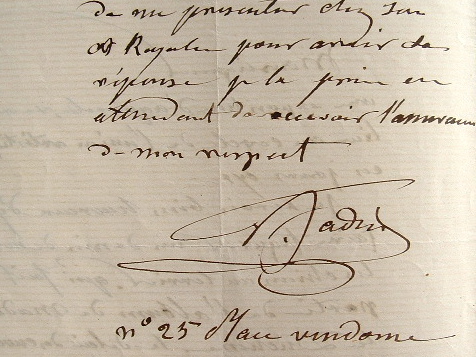 de me presenter chez Son
A Royale pour avoir sa
réponse je la prie en
attendant de recevoir l'assurance
de mon respect
n° 25 Place vendome